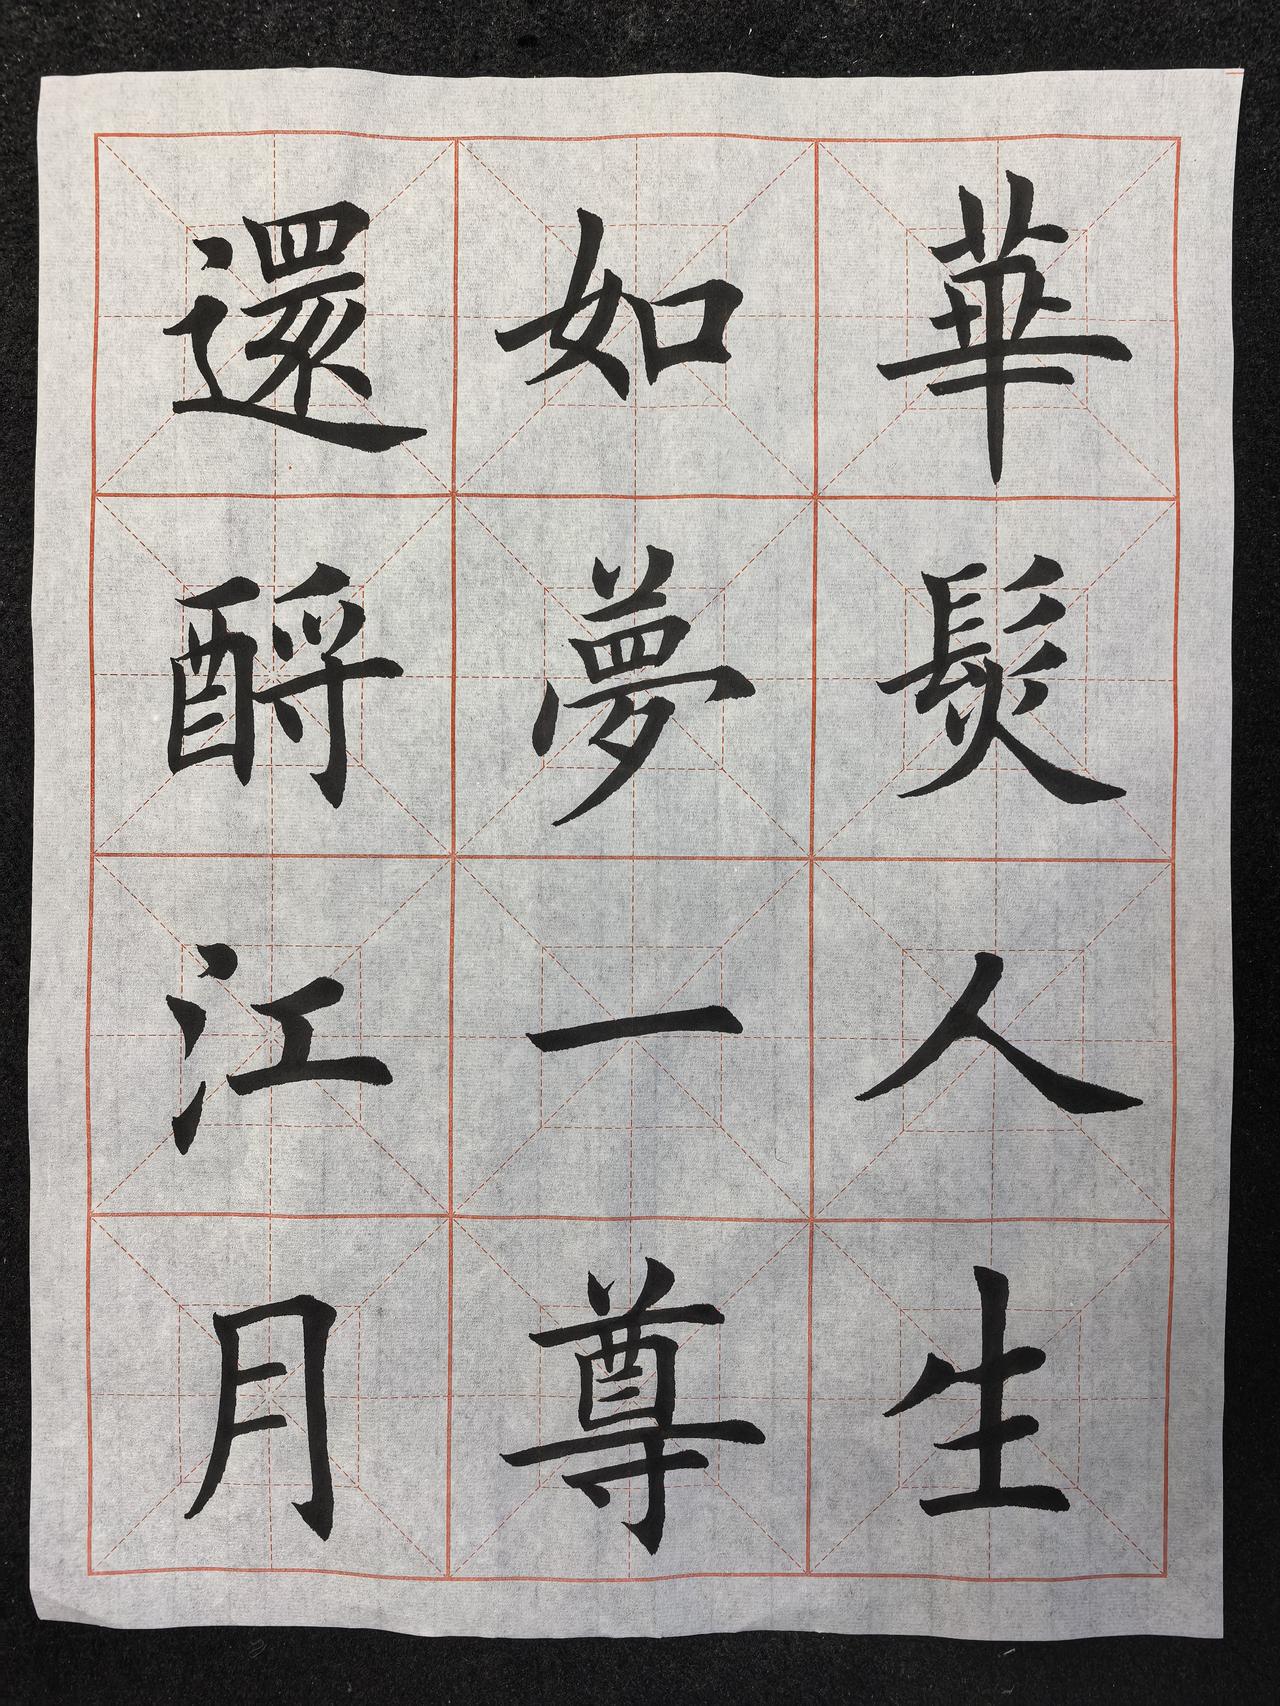 華髮人生
如夢一尊
還酹江月